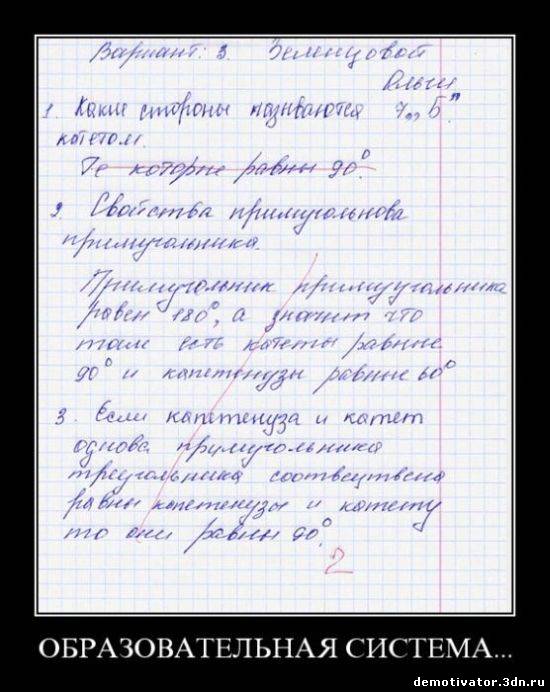 Вариант: 3. Зеленцовой
Ольги
1. Какие стороны называются 7 „Б"
катетом.
Те которые равны 90°.
2. Свойства примугольнова
примуугольника.
Примугольник примуугольника
равен 180°, а значит что
там есть катеты равные
90° и капетенузы равные 60°
3. Если капетенуза и катет
однова примугольника
треугольника соотвецтвена
равны капетенузы и катету
то они равны 90°.
2
ОБРАЗОВАТЕЛЬНАЯ СИСТЕМА...
demotivator.3dn.ru